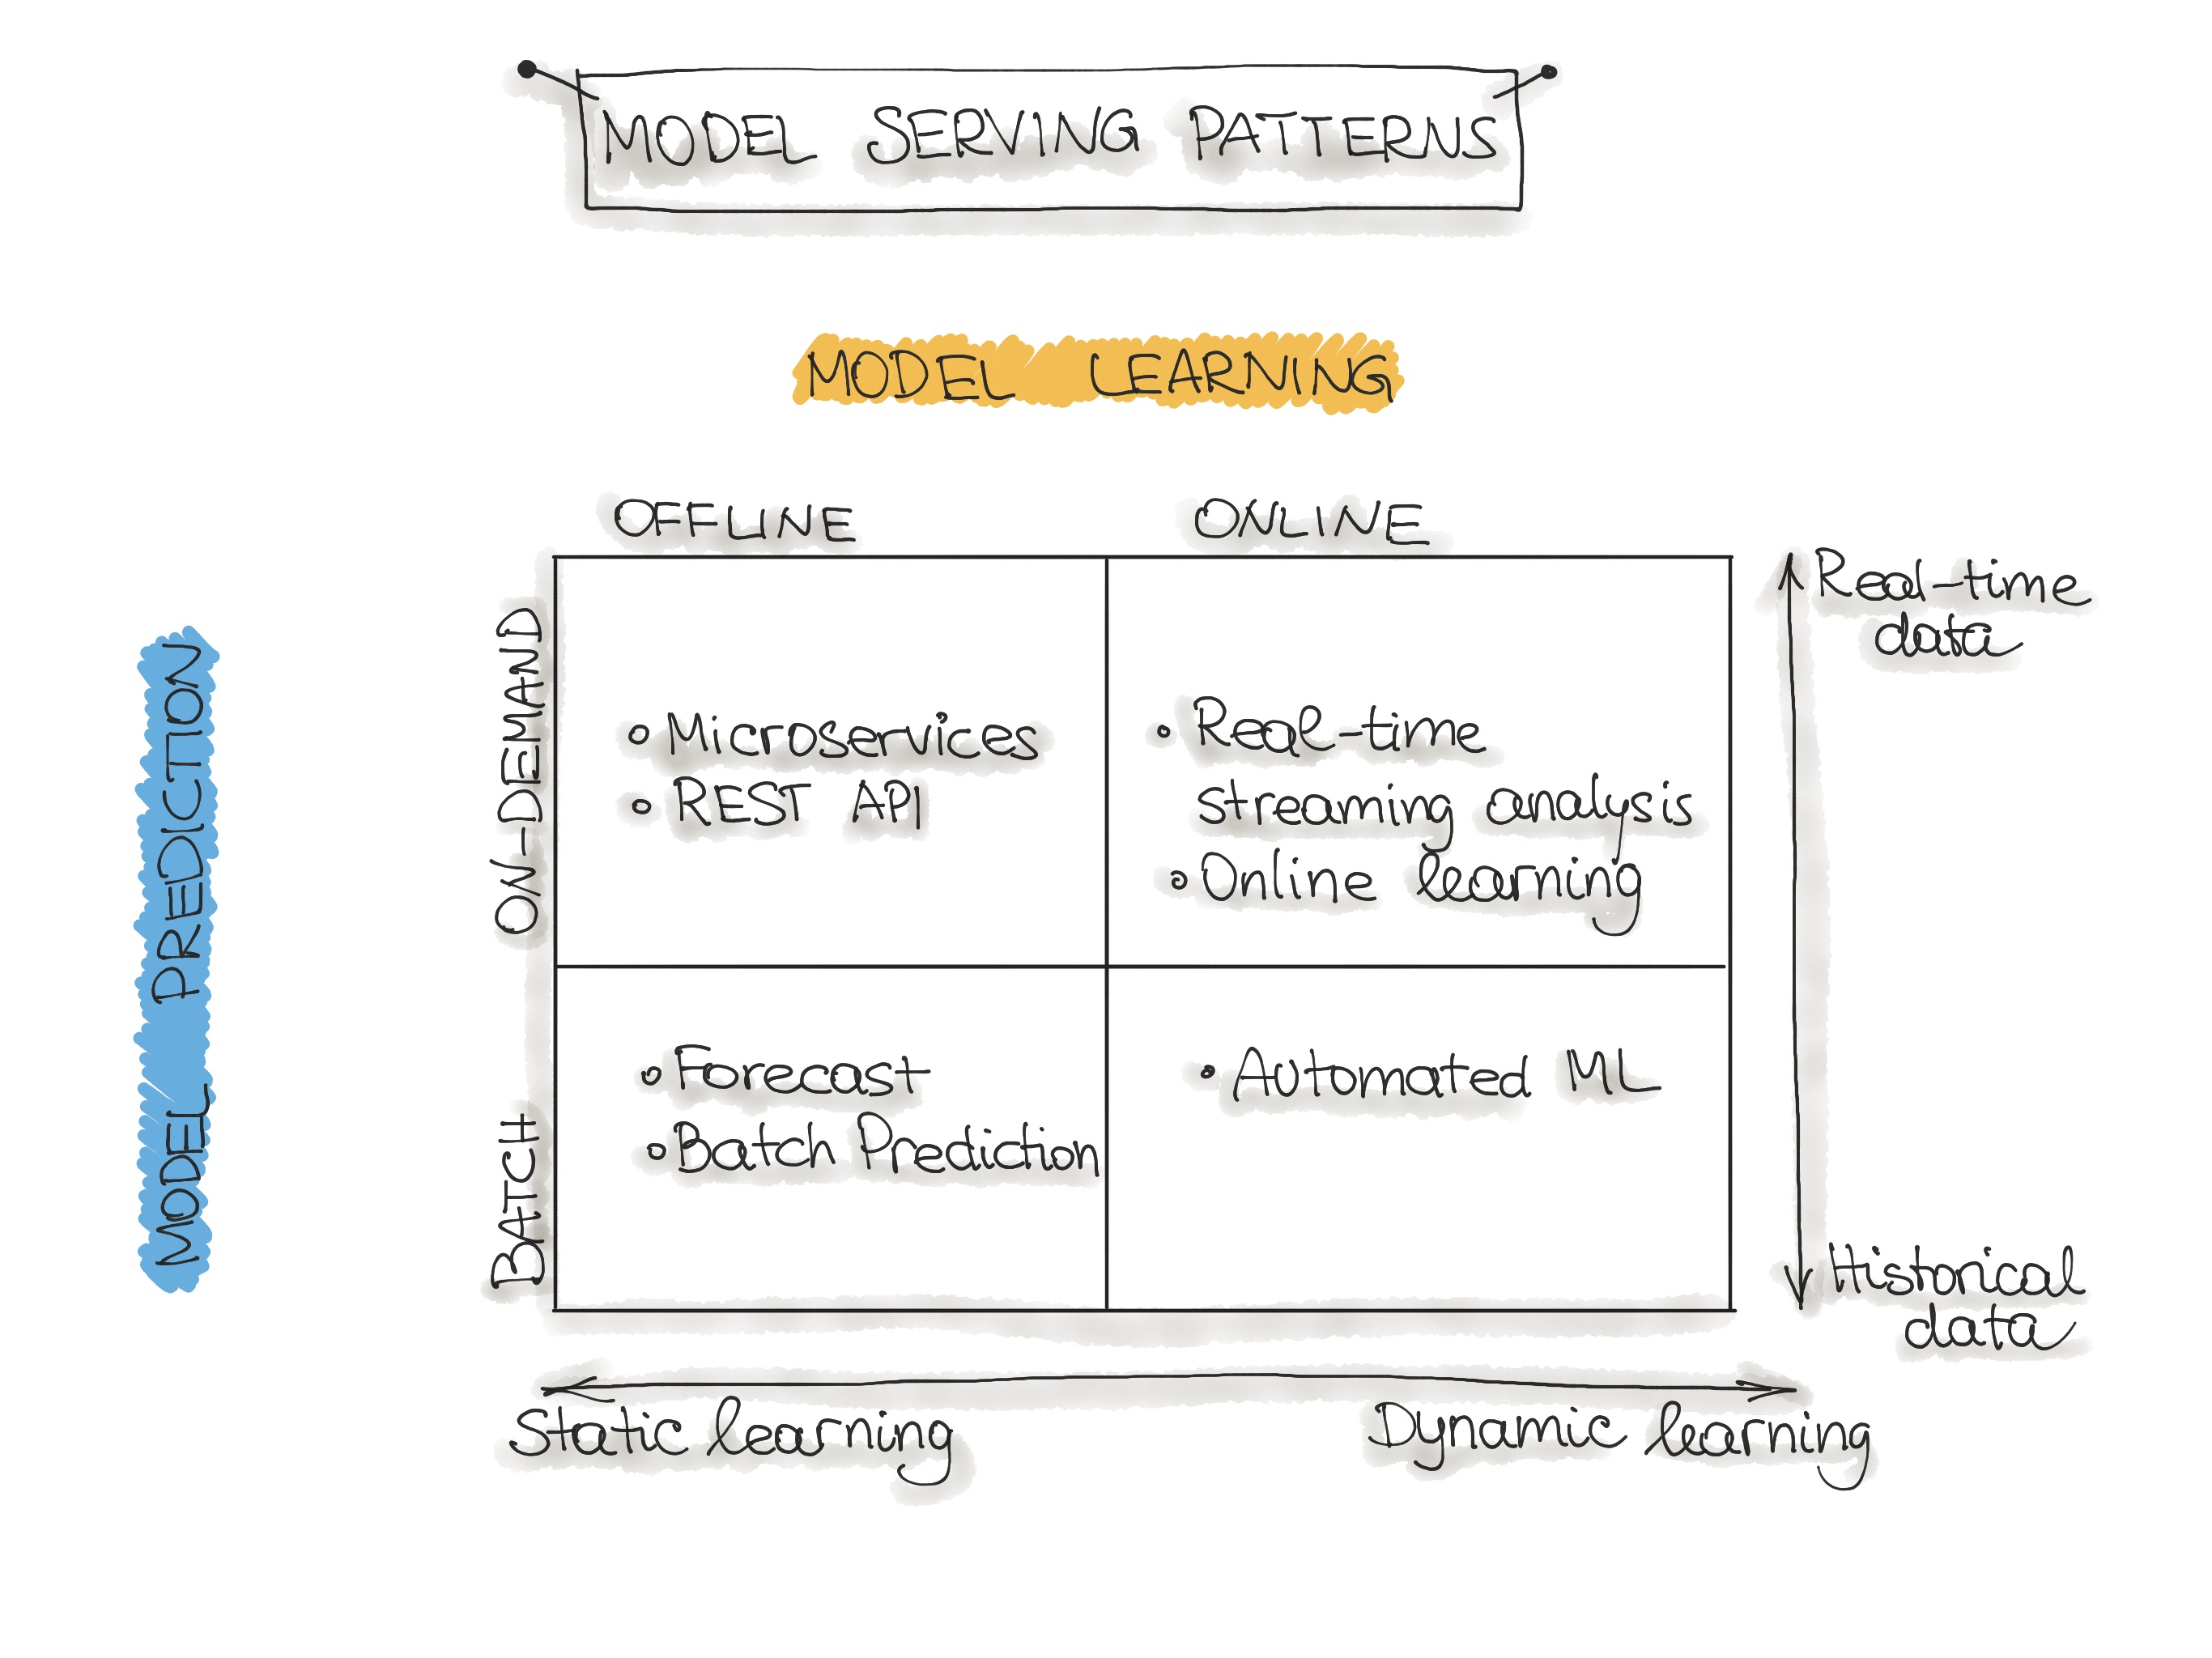 MODEL SERVING PATTERNS
MODEL LEARNING
OFFLINE
ONLINE
MODEL PREDICTION
ON-DEMAND
BATCH
Microservices
REST API
Real-time
streaming analysis
Online learning
Forecast
Batch Prediction
Automated ML
Real-time
data
Historical
data
Static learning
Dynamic learning